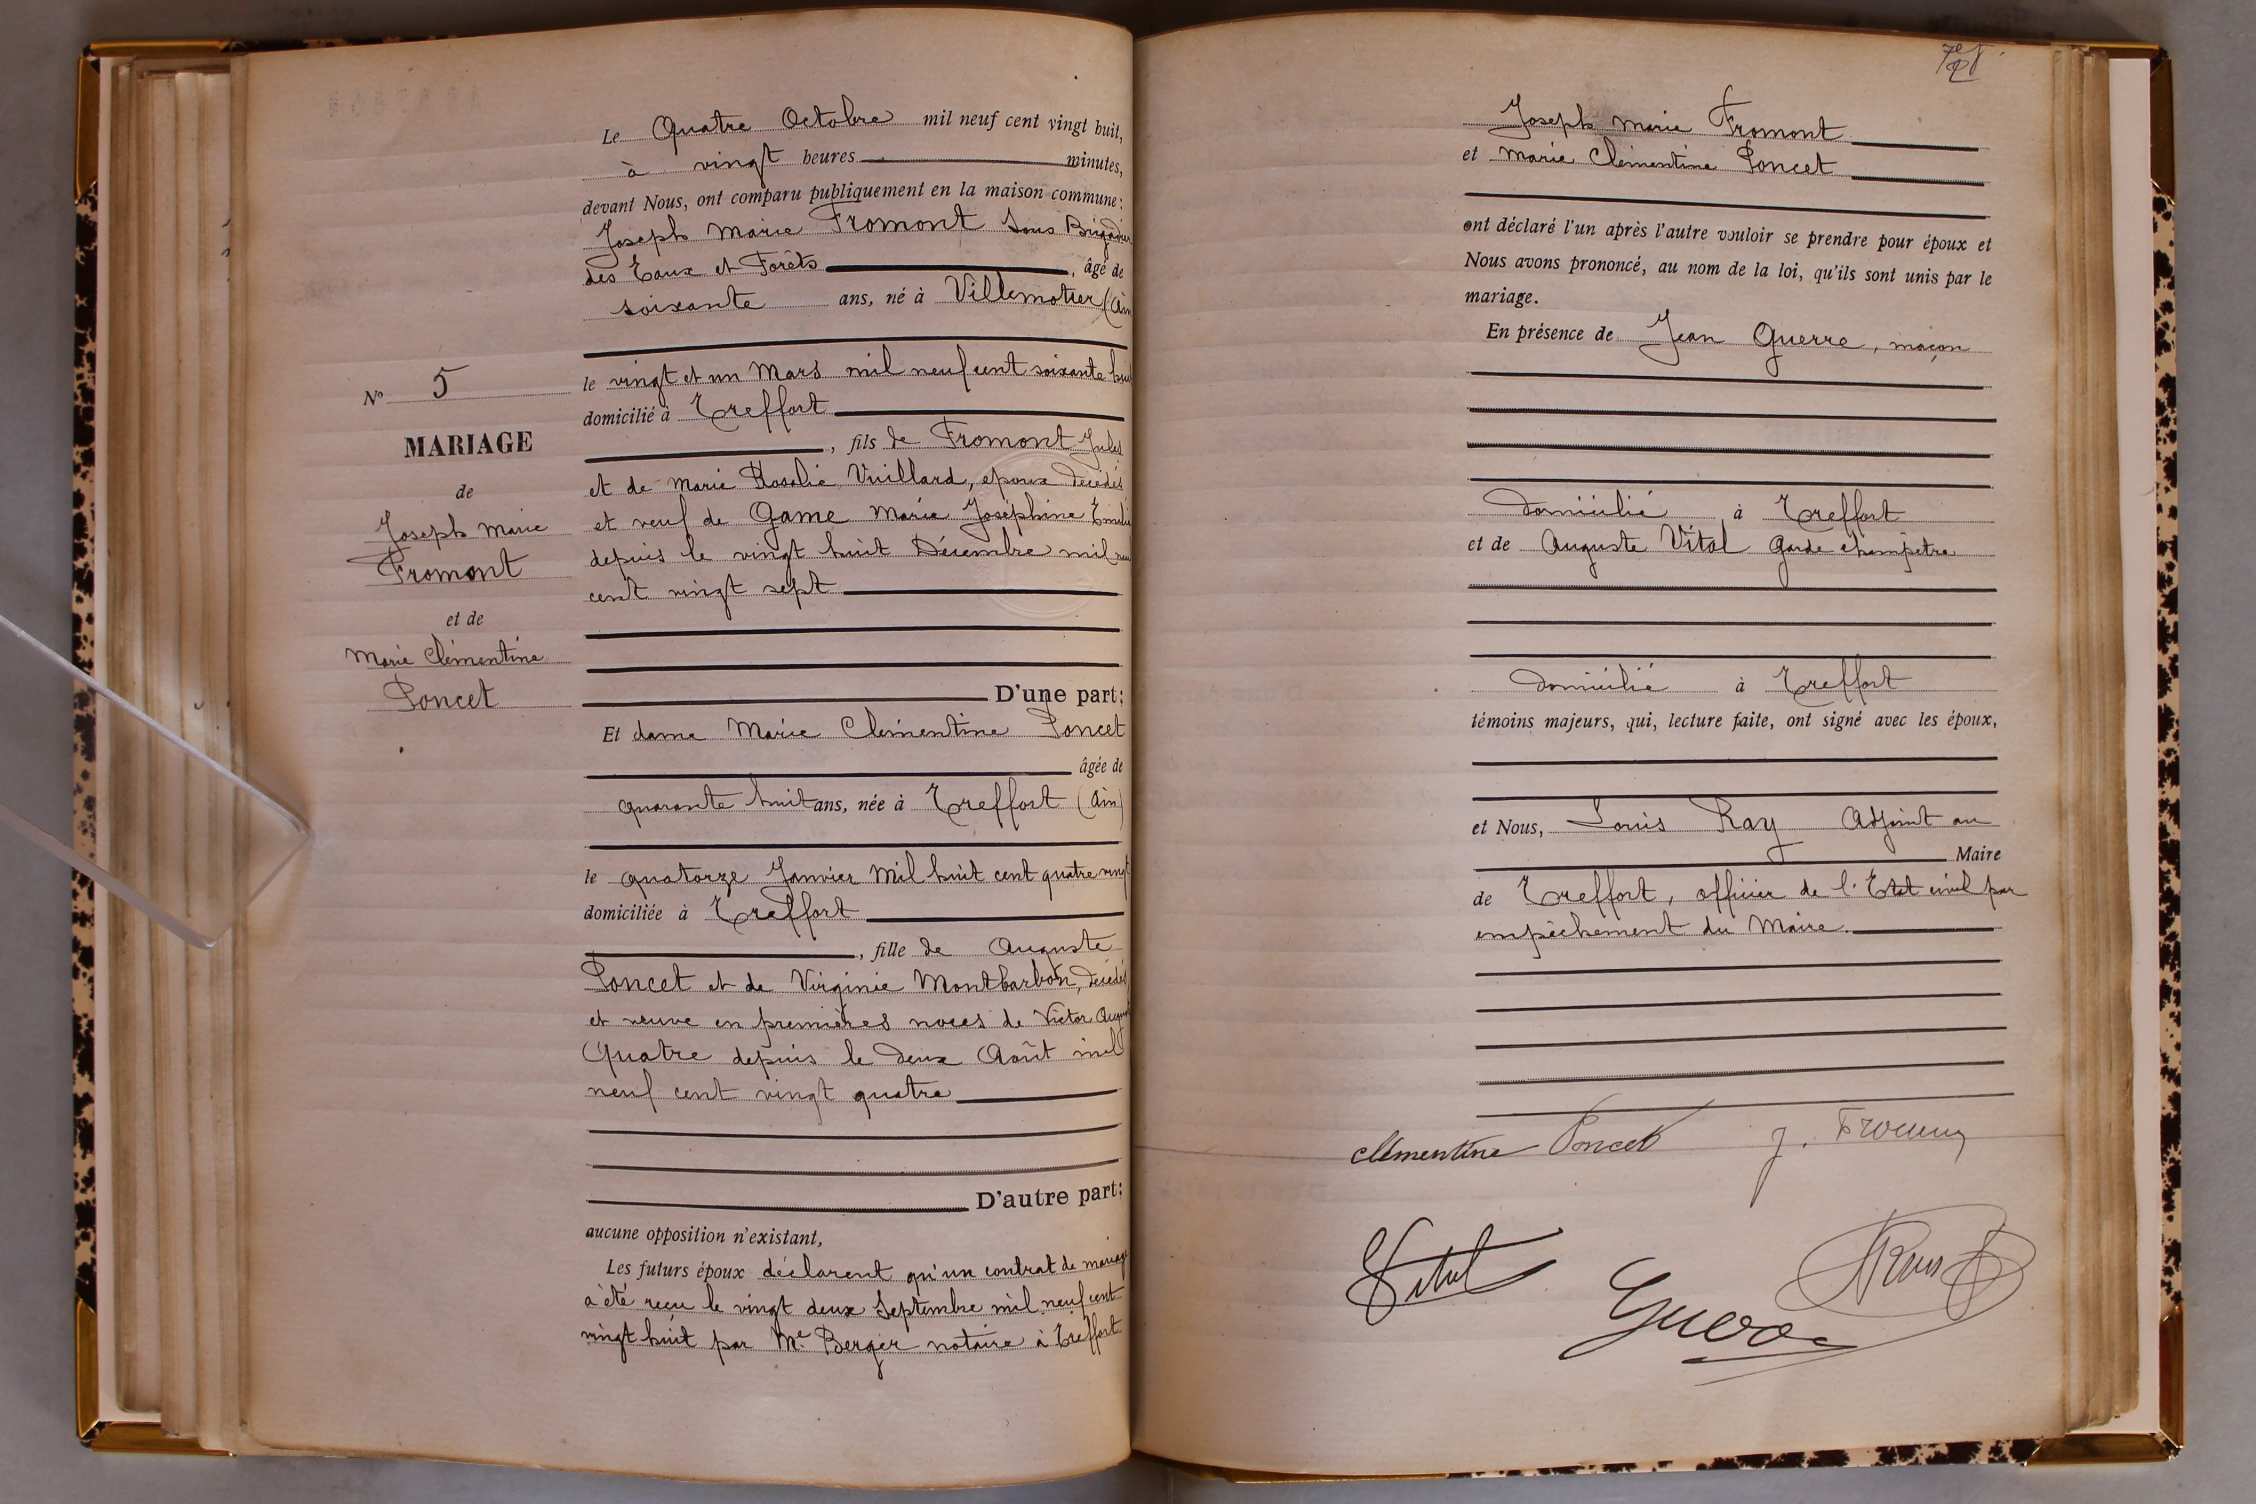 Le Quatre Octobre mil neuf cent vingt huit,
à vingt heures minutes,
devant Nous, ont comparu publiquement en la maison commune:
Joseph Marie Fromont Sous Brigadier
des Eaux et Forêts, âgé de
soixante ans, né à Villemotier (Ain
le vingt et un Mars mil neuf cent soixante huit
domicilié à Treffort
, fils de Fromont Jules
et de Marie Rosalie Vuillard, époux décédés
et veuf de Game Marie Joséphine Emilie
depuis le vingt huit Décembre mil neuf
cent vingt sept
D'une part;
Et dame Marie Clémentine Poncet
âgée de
quarante huit ans, née à Treffort (Ain)
le quatorze Janvier mil huit cent quatre vingt
domiciliée à Treffort
, fille de Auguste
Poncet et de Virginie Montbarbon, décédés
et veuve en premières noces de Victor August
Quatre depuis le deux Août mil
neuf cent vingt quatre
D'autre part;
aucune opposition n'existant,
Les futurs époux déclarent qu'un contrat de mariage
a été reçu le vingt deux Septembre mil neuf cent
vingt huit par Me Berger notaire à Treffort
No 5
MARIAGE
de
Joseph Marie
Fromont
et de
Marie Clémentine
Poncet
Joseph Marie Fromont
et Marie Clémentine Poncet
ont déclaré l'un après l'autre vouloir se prendre pour époux et
Nous avons prononcé, au nom de la loi, qu'ils sont unis par le
mariage.
En présence de Jean Guerre, maçon
domicilié à Treffort
et de Auguste Vital Garde champêtre
domicilié à Treffort
témoins majeurs, qui, lecture faite, ont signé avec les époux,
et Nous, Louis Ray Adjoint au
Maire
de Treffort, officier de l'Etat civil par
empêchement du Maire.
Clémentine Poncet J. Fromont
Vital
Guerre